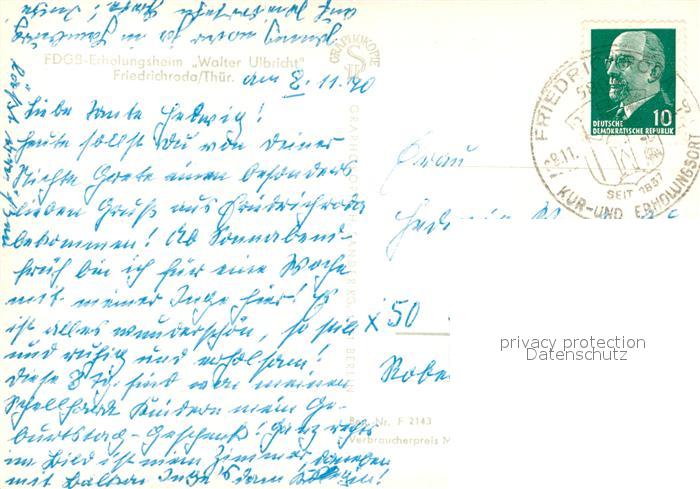 FDGB-Erholungsheim „Walter Ulbricht"
Friedrichroda/Thür.
am 8.11.70
Liebe Tante Hedwig!
Heute sollst Du von Deiner
Nichte Grete einen besonders
lieben Gruß aus Friedrichroda
bekommen! Ab Sonnabend-
früh bin ich für eine Woche
mit meiner Inge hier! Es
ist alles wunderschön, so still
und ruhig und erholsam!
Diese 8 Tg. sind von meinen
Kindern mein Ge-
burtstag-Geschenk! Ganz rechts
im Bild ist mein Zimmer, daneben
mit Balkon Inge's
GRAPHOKOPIE
Frau
50
Robe
Nr. F 2143
Verbraucherpreis M
10
DEUTSCHE
DEMOKRATISCHE REPUBLIK
FRIEDRICHRODA
8.11.
SEIT 1837
KUR-UND ERHOLUNGSORT
privacy protection
Datenschutz